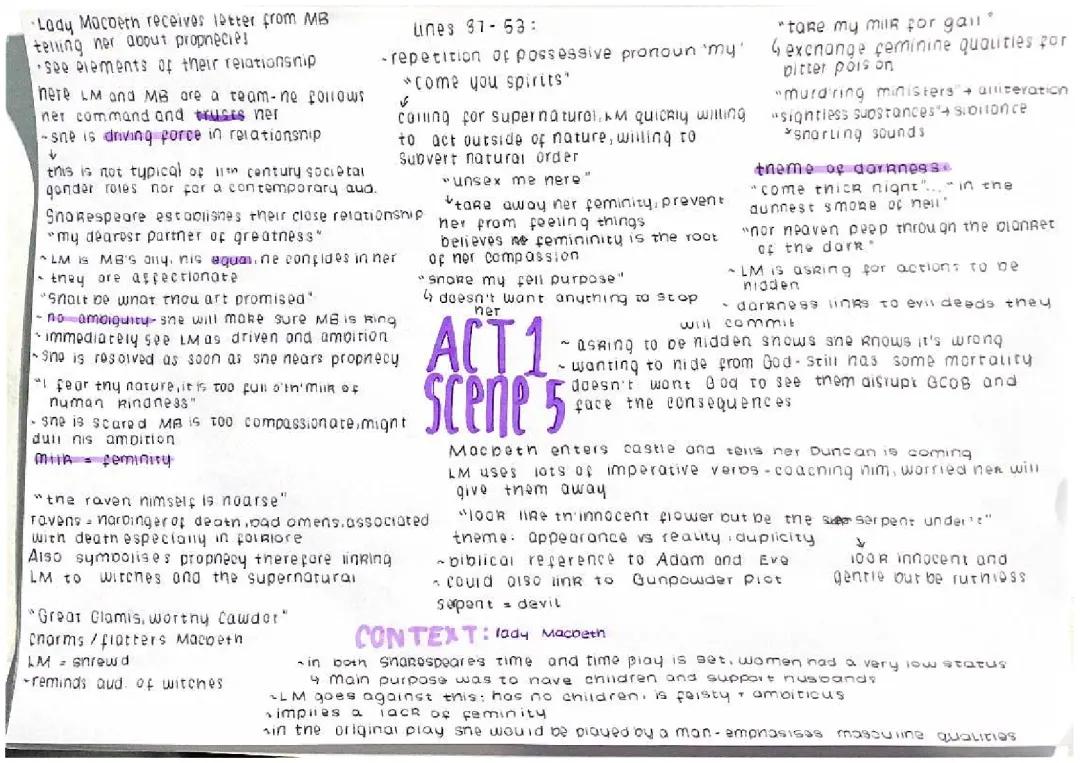 ·Lady Macbeth receives letter from MB
telling her about prophecies
·see elements of their relationship
here LM and MB are a team-he follows
her command and trusts her
~she is driving force in relationship
↓
this is not typical of 11th century societal
gender roles nor for a contemporary aud.
Shakespeare establishes their close relationship
"my dearest partner of greatness"
~LM is MB's ally, his equal, he confides in her
~ they are affectionate
"Shalt be what thou art promised"
~no ambiguity-she will make sure MB is king
~immediately see LM as driven and ambition
~She is resolved as soon as she hears prophecy
"I fear thy nature, it is too full o'th'milk of
human kindness"
~ she is scared MB is too compassionate, might
dull his ambition
milk = feminity
"the raven himself is hoarse"
ravens = harbinger of death, bad omens, associated
with death especially in folklore
Also symbolises prophecy therefore linking
LM to witches and the supernatural
"Great Glamis, worthy Cawdor"
Charms / flatters Macbeth
LM = shrewd
~reminds aud. of witches
lines 37-53:
~repetition of possessive pronoun 'my'
"come you spirits"
↓
calling for supernatural, LM quickly willing
to act outside of nature, willing to
subvert natural order
"unsex me here"
↳take away her feminity, prevent
her from feeling things
believes femininity is the root
of her compassion
"shake my fell purpose"
↳ doesn't want anything to stop
her
"take my milk for gall"
↳ exchange feminine qualities for
bitter poison
"murd'ring ministers" → alliteration
"sightless substances" → sibilance
↳snarling sounds
theme of darkness:
"come thick night"..."in the
dunnest smoke of hell"
"nor heaven peep through the blanket
of the dark"
~ LM is asking for actions to be
hidden
~ darkness links to evil deeds they
will commit
ACT 1
Scene 5
~ asking to be hidden shows she knows it's wrong
~ wanting to hide from God-still has some mortality
doesn't want God to see them disrupt GCOB and
face the consequences
Macbeth enters castle and tells her Duncan is coming
LM uses lots of imperative verbs-coaching him, worried he will
give them away
"look like th'innocent flower but be the serpent under't"
theme: appearance vs reality, duplicity
↓
look innocent and
gentle but be ruthless
~biblical reference to Adam and Eve
~ could also link to Gunpowder Plot
sepent = devil
CONTEXT: lady Macbeth
~in both Shakespeare's time and time play is set, women had a very low status
↳ main purpose was to have children and support husbands
~LM goes against this: has no children, is feisty + ambitious
~implies a lack of feminity
~in the original play she would be played by a man-emphasises masculine qualities